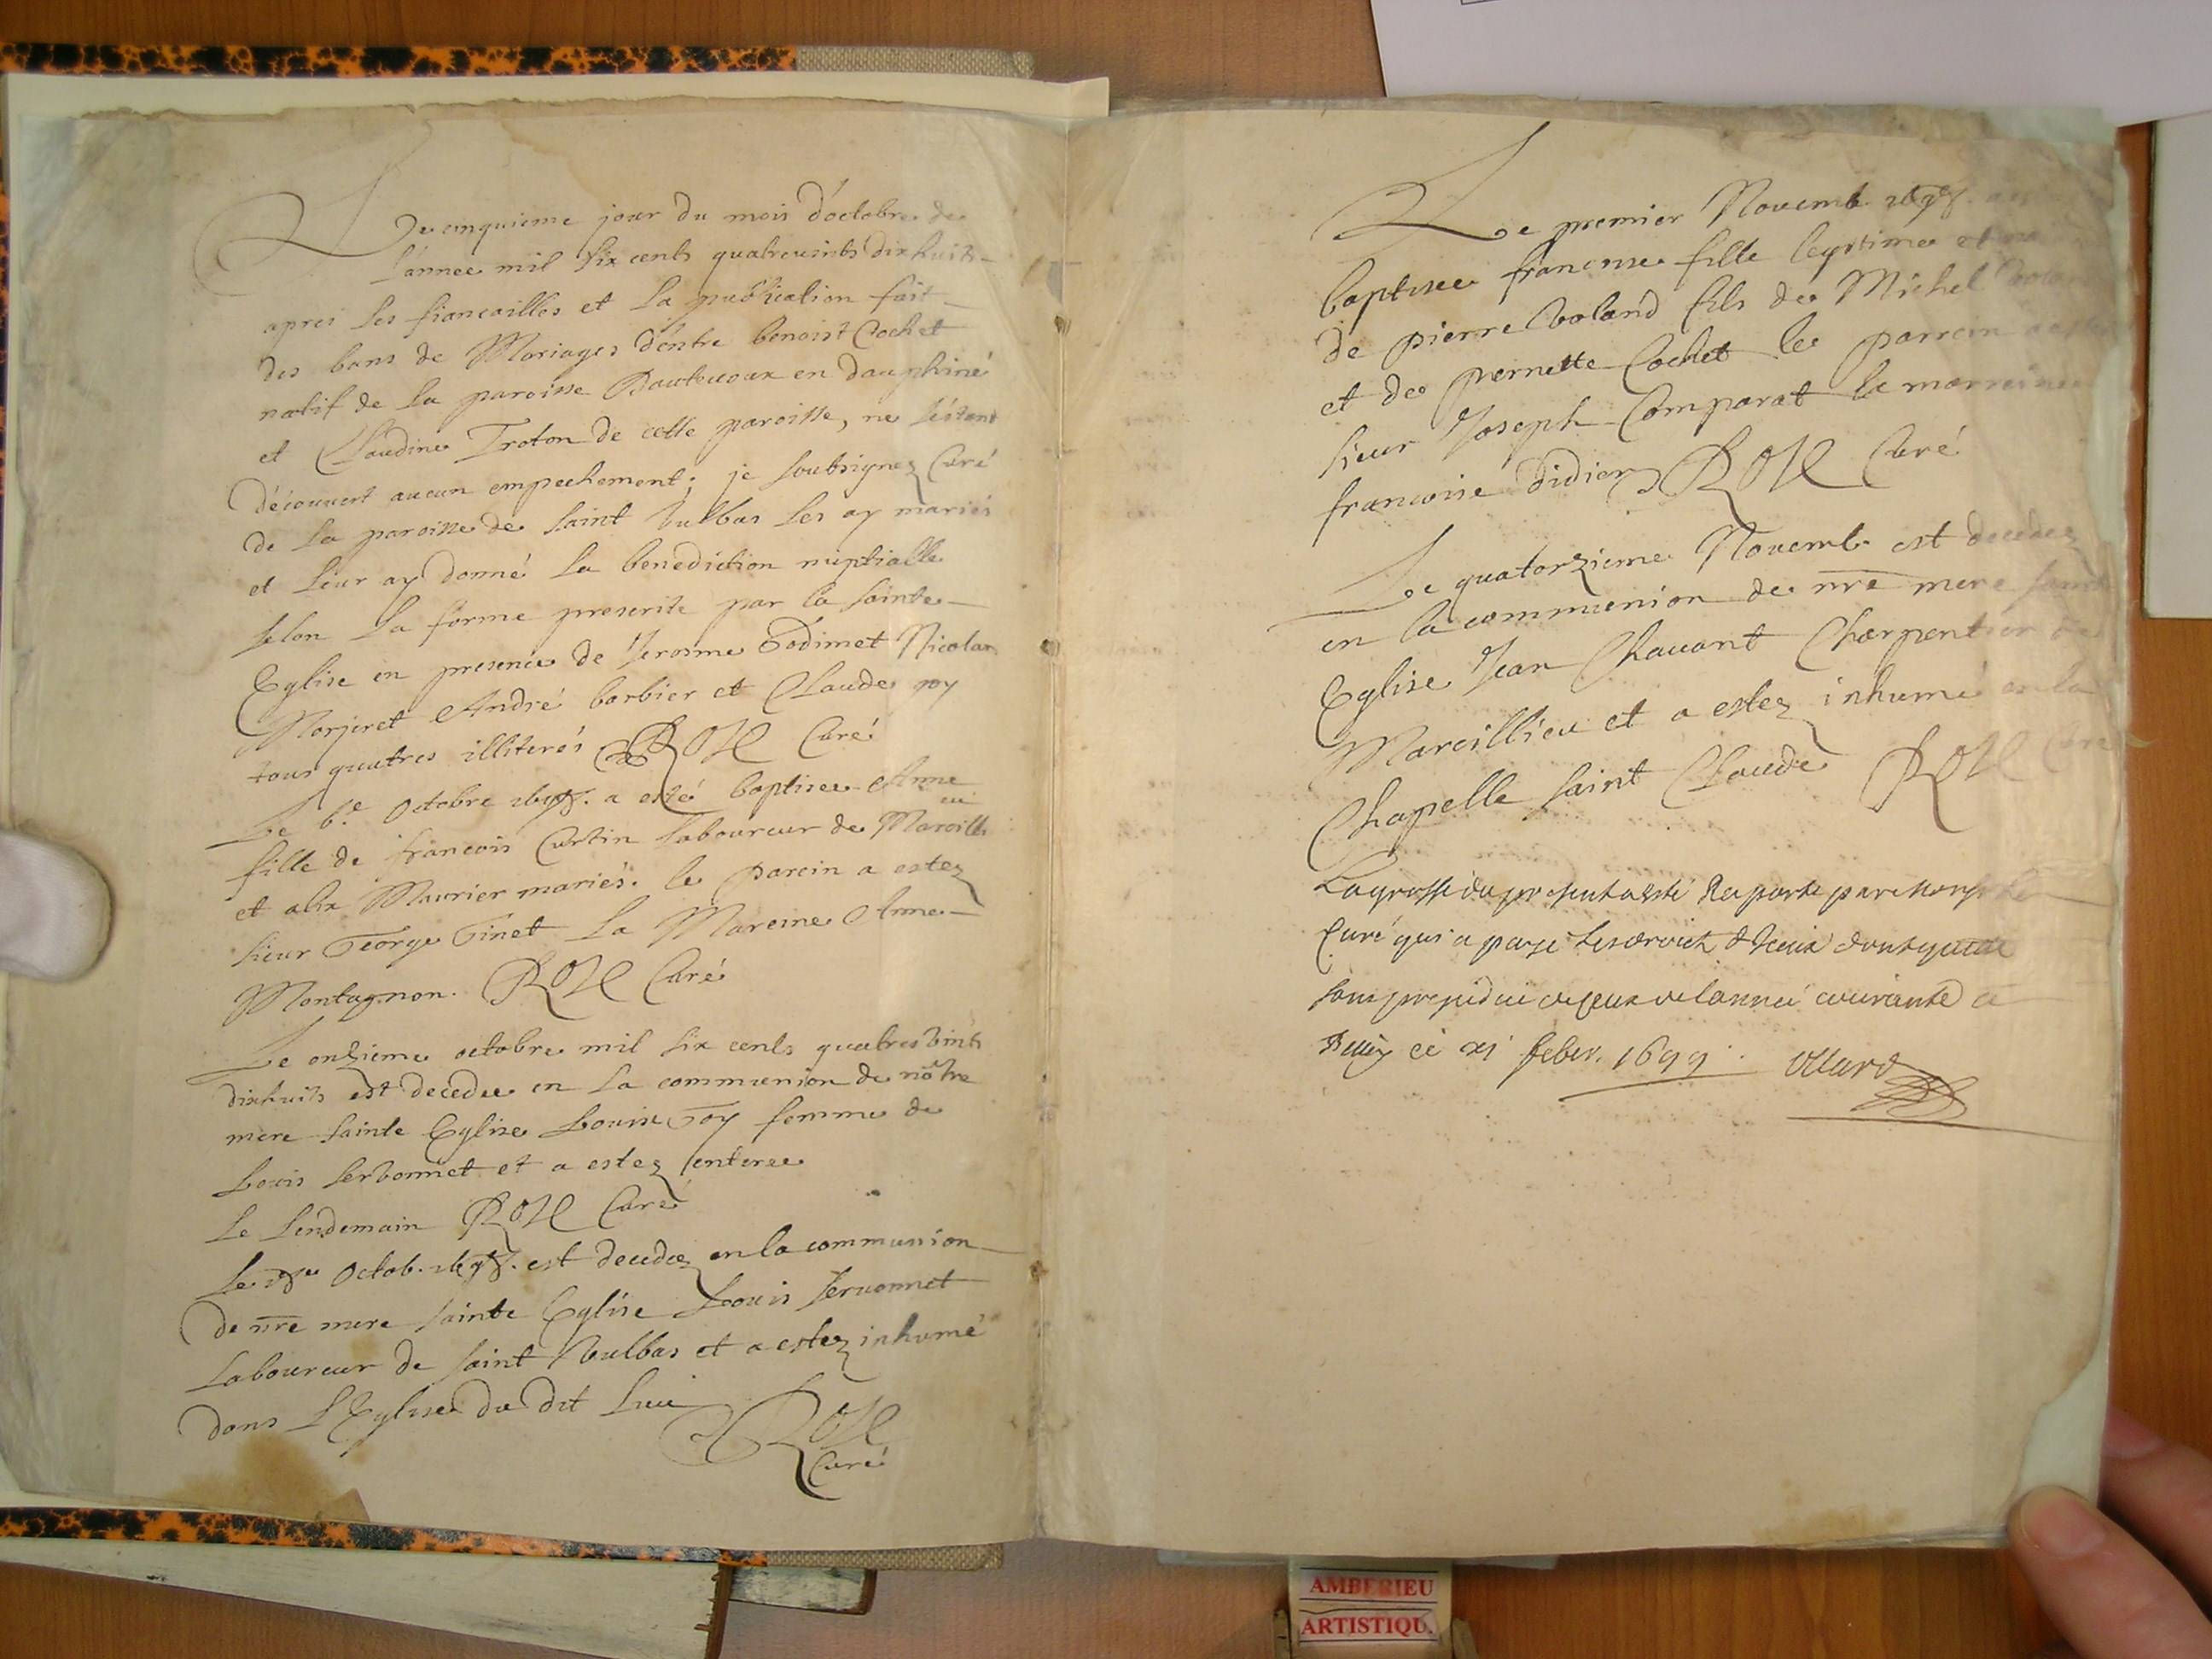 Le cinquieme jour du mois d'octobre de
l'annee mil six cents quatrevints dixhuits
apres les fiancailles et la publication fait
des bans de Mariages d'entre benoist Cochet
natif de la paroisse en dauphiné
et Claudine Troton de cette paroisse, ne s'estant
découvert aucun empechement; je soubsignez Curé
de la paroisse de saint Vulbas les ay mariés
et leur ay donné la benediction nuptialle
selon la forme prescrite par la sainte
Eglise en presence de Jerosme Nicolas
Morjeret André barbier et Claude
tous quatres illiterés ROZE Curé
Le 6.e Octobre 1698. a esté baptisee Anne
fille de francois Curtin laboureur de Marcillieu
et alix Maurier mariés. le parein a estez
sieur George Tinet La Mareine Anne
Montagnon. ROZE Curé
Le onzieme octobre mil six cents quatres vints
dixhuits est decedee en la communion de nôtre
mere sainte Eglise Louise Goy femme de
Louis serbonnet et a estez enteree
le lendemain ROZE Curé
Le Octob. 1698. est decedez en la communion
de nre mere sainte Eglise Louis servonnet
Laboureur de saint Vulbas et a estez inhumé
dans L'Eglise du dit lieu ROZE
Curé
Le premier Novemb. 1698.
baptisee francoise fille legitime et
de pierre Voland fils de Michel
et de pernette Cochet le parrein
sieur Joseph Comparat la marreine
francoise didier ROZE Curé
Le quatorzieme Novemb. est decedez
en la communion de nre mere
Eglise Jean Chavant Charpentier de
Marcillieu et a estez inhumé en la
Chapelle saint Claude ROZE Curé
La grosse du present a esté raporté par
Curé qui a payé les droict
sans prejudice de ceux de l'année courante a
ce feber. 1699.